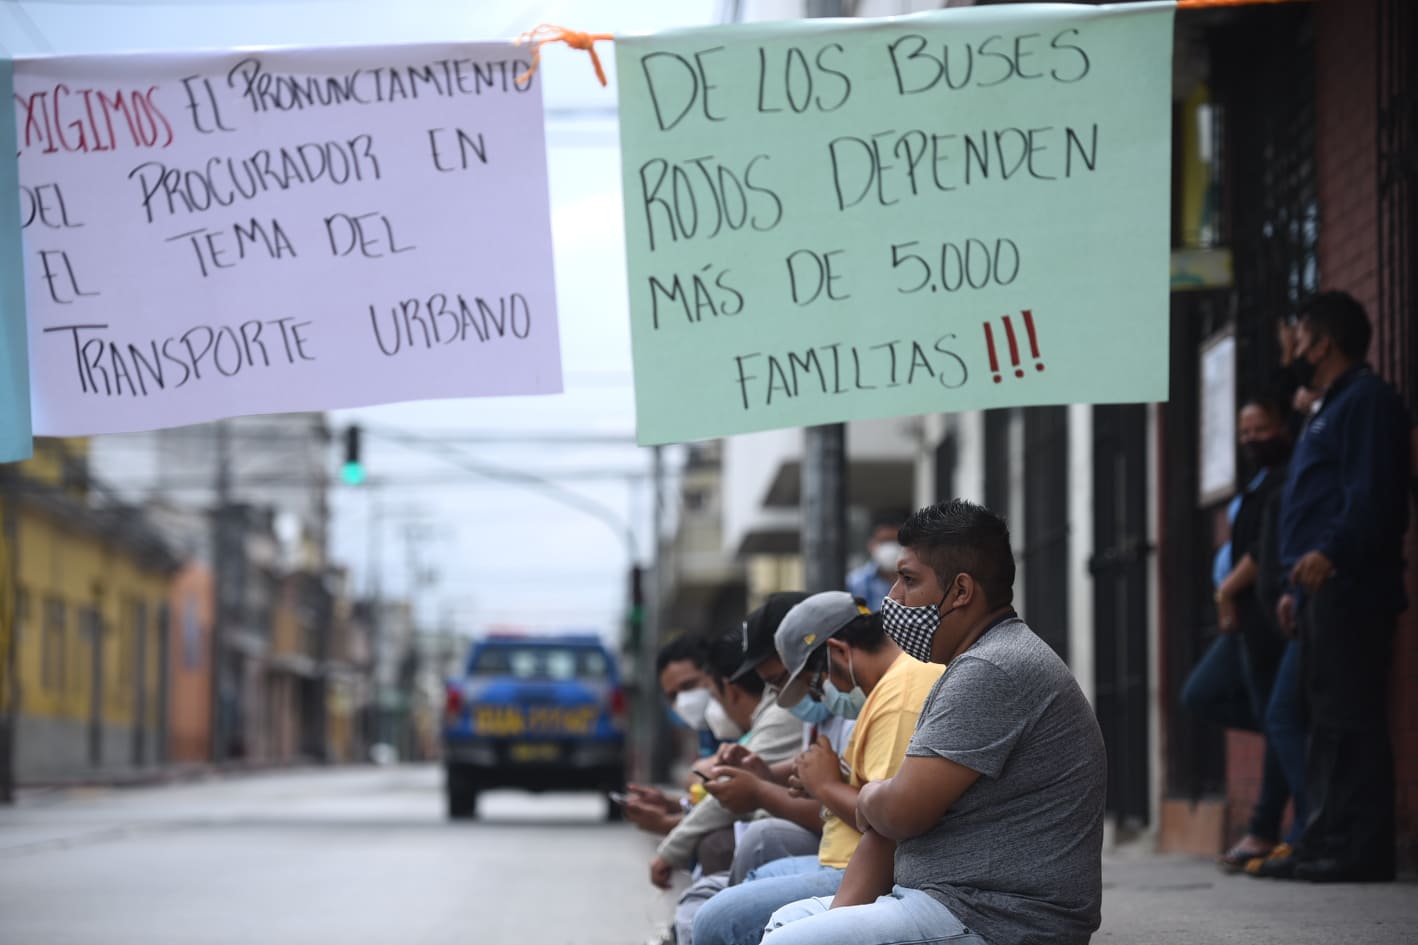 XIGIMOS EL PRONUNCIAMIENTO
DEL PROCURADOR EN
EL TEMA DEL
TRANSPORTE URBANO
DE LOS BUSES
ROJOS DEPENDEN
MÁS DE 5.000
FAMILIAS!!!